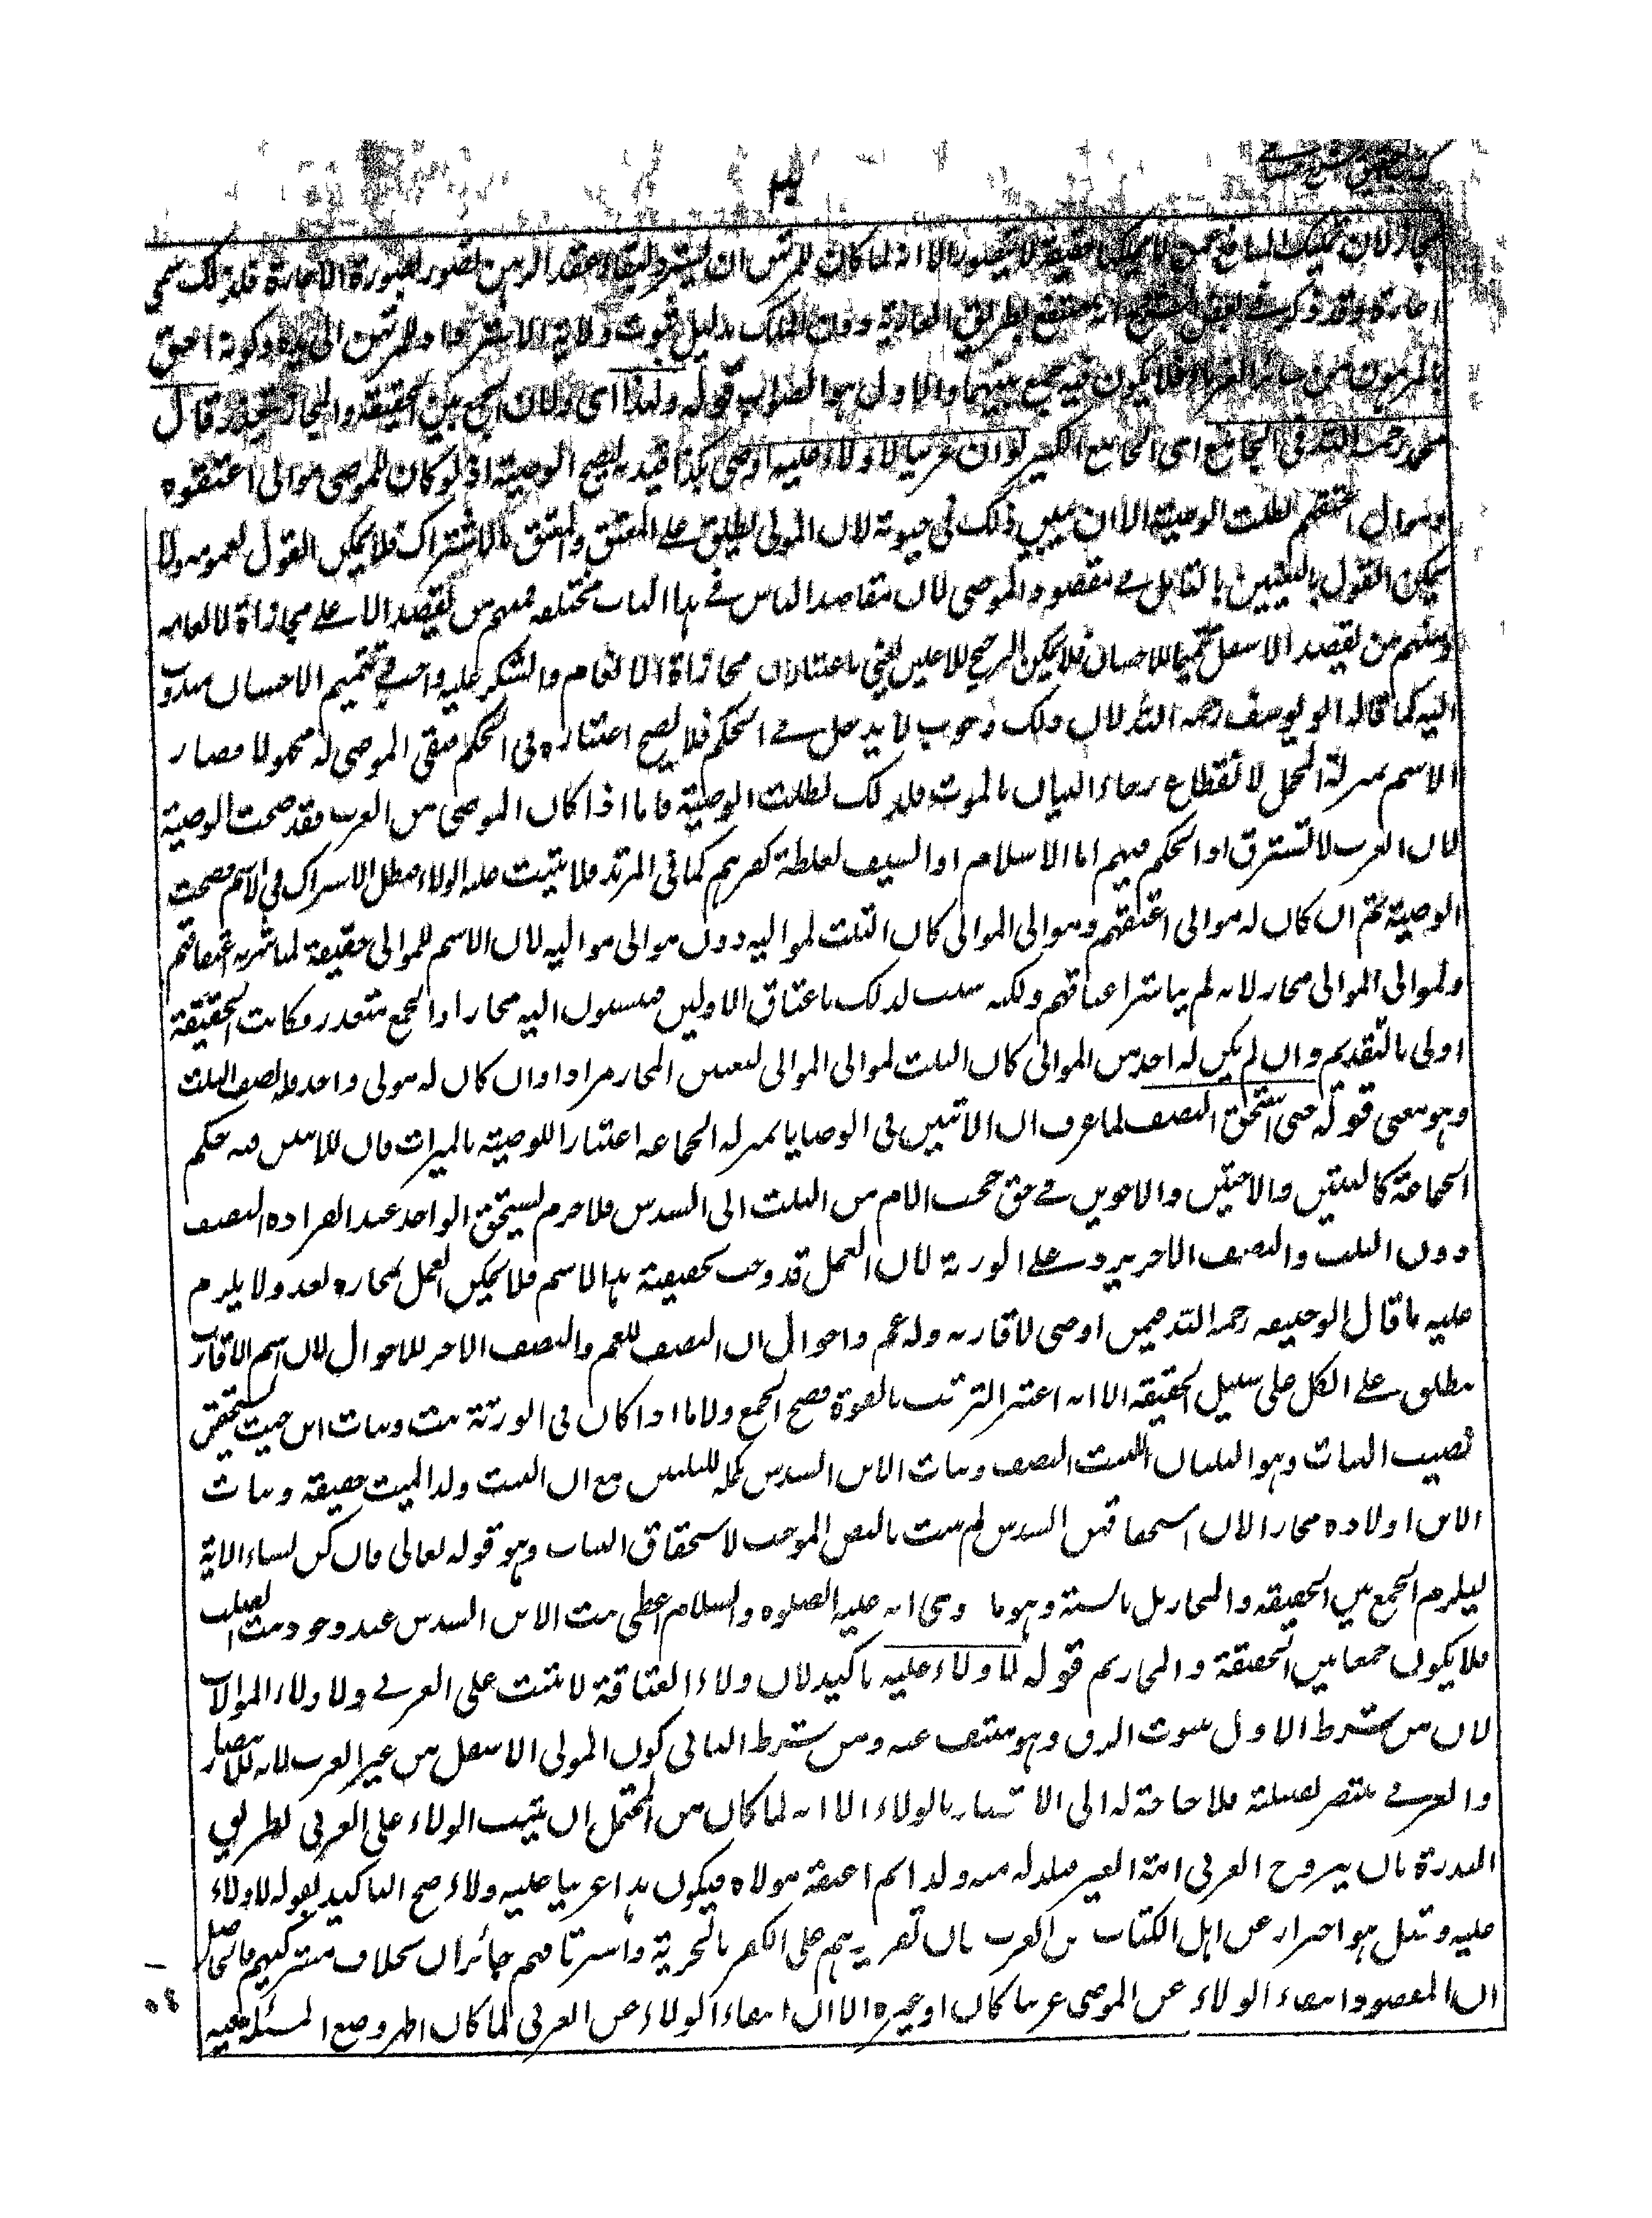 مجاز لان تمليك المنافع ممن لا يملك حقيقة لا يتصور الا انه لما كان للمرتهن ان يسترد لبقاء عقد الرهن تصور بصورة الاعارة فلذلك سمى
اعارة وقد ذكر في بعض انه ينتفع بطريق العارية دون الملك بدليل ثبوت ولاية الاسترداد للمرتهن الى يده وكونه احق
بالمرهون من سائر الغرماء فلا يكون فيه جمع بينهما والاول هو الصواب قوله ولهذا اى ولان الجمع بين الحقيقة والمجاز متعذر قال
محمد رحمه الله فى الجامع اى الجامع الكبير لو ان عربيا لا ولاء عليه اوصى بكذا قيد به ليصح الوصية اذ لو كان للموصى موالى اعتقوه
وموالى اعتقهم بطلت الوصية الا ان يبين ذلك فى حيوته لان المولى يطلق على المعتق والمعتق بالاشتراك فلا يمكن القول بعمومه ولا
يمكن القول بالتعيين بالتامل فى مقصود الموصى لان مقاصد الناس فى هذا الباب مختلفة فمنهم من يقصد الاعلى مجازاة لانعامه
ومنهم من يقصد الاسفل تتميما للاحسان فلا يمكن الترجيح للاعلين يعنى باعتبار ان مجازاة الانعام والشكر عليه واجب وتتميم الاحسان مندوب
اليه كما قاله ابو يوسف رحمه الله لان ذلك وجوب لا يدخل فى الحكم فلا يصح اعتباره فى الحكم فبقى الموصى له مجهولا فصار
الاسم بمنزلة المجمل لانقطاع رجاء البيان بالموت فلذلك بطلت الوصية فاما اذا كان الموصى من العرب فقد صحت الوصية
لان العرب لا تسترق اذ الحكم فيهم اما الاسلام او السيف لغلظة كفرهم كما فى المرتد فلا يثبت عليه الولاء فبطل الاشتراك فى الاسم فصحت
الوصية ثم ان كان له موالى اعتقهم وموالى الموالى كان الثلث لمواليه دون موالى مواليه لان الاسم للموالى حقيقة لمباشرته اعتاقهم
ولموالى الموالى مجاز لانه لم يباشر اعتاقهم ولكنه سبب لذلك باعتاق الاولين فينسبون اليه مجازا والجمع متعذر فكانت الحقيقة
اولى بالتقديم وان لم يكن له احد من الموالى كان الثلث لموالى الموالى لتعين المجاز مرادا وان كان له مولى واحد فله نصف الثلث
وهو معنى قوله حتى استحق النصف لما عرف ان الاثنين فى الوصايا بمنزلة الجماعة اعتبارا للوصية بالميراث فان للاثنين فيه حكم
الجماعة كالبنتين والاختين والاخوين فى حق حجب الام من الثلث الى السدس فلا جرم يستحق الواحد عند انفراده النصف
دون الثلث والنصف الاخر يرد على الورثة لان العمل قد وجب بحقيقة هذا الاسم فلا يمكن العمل بمجازه بعد ولا يلزم
عليه ما قال ابو حنيفة رحمه الله فيمن اوصى لاقاربه وله عم واخوال ان النصف للعم والنصف الاخر للاخوال لان اسم الاقارب
ينطلق على الكل على سبيل الحقيقة الا انه اعتبر الترتيب بالقوة فصح الجمع ولا ما اذا كان فى الورثة بنت وبنات ابن حيث يستحقن
نصيب البنات وهو الثلثان للبنت النصف وبنات الابن السدس تكملة للثلثين مع ان البنت ولد الميت حقيقة وبنات
الابن اولاده مجازا لان استحقاقهن السدس لم يثبت بالنص الموجب لاستحقاق البنات وهو قوله تعالى فان كن نساء الاية
ليلزم الجمع بين الحقيقة والمجاز بل بالسنة وهو ما روى انه عليه الصلوة والسلام اعطى بنت الابن السدس عند وجود بنت الصلب
فلا يكون جمعا بين الحقيقة والمجاز ثم قوله لا ولاء عليه تاكيد لان ولاء العتاقة لا يثبت على العربى ولا ولاء الموالات
لان من شرط الاول ثبوت الرق وهو منتف عنه ومن شرط الثانى كون المولى الاسفل من غير العرب لانه للاستنصار
والعربى ينتصر بقبيلته فلا حاجة له الى الانتصار بالولاء الا انه لما كان من المحتمل ان يثبت الولاء على العربى بطريق
الندرة بان يتزوج العربى امة الغير فيلد له منه ولد ثم اعتقه مولاه فيكون هذا عربيا عليه ولاء صح التاكيد بقوله لا ولاء
عليه وقيل هو احتراز عن اهل الكتاب من العرب فان تقريرهم على الكفر بالجزية واسترقاقهم جائزان بخلاف مشركيهم فالحاصل
ان المقصود انتفاء الولاء عن الموصى عربيا كان او غيره الا ان انتفاء الولاء عن العربى لما كان اظهر وضع المسئلة فيه